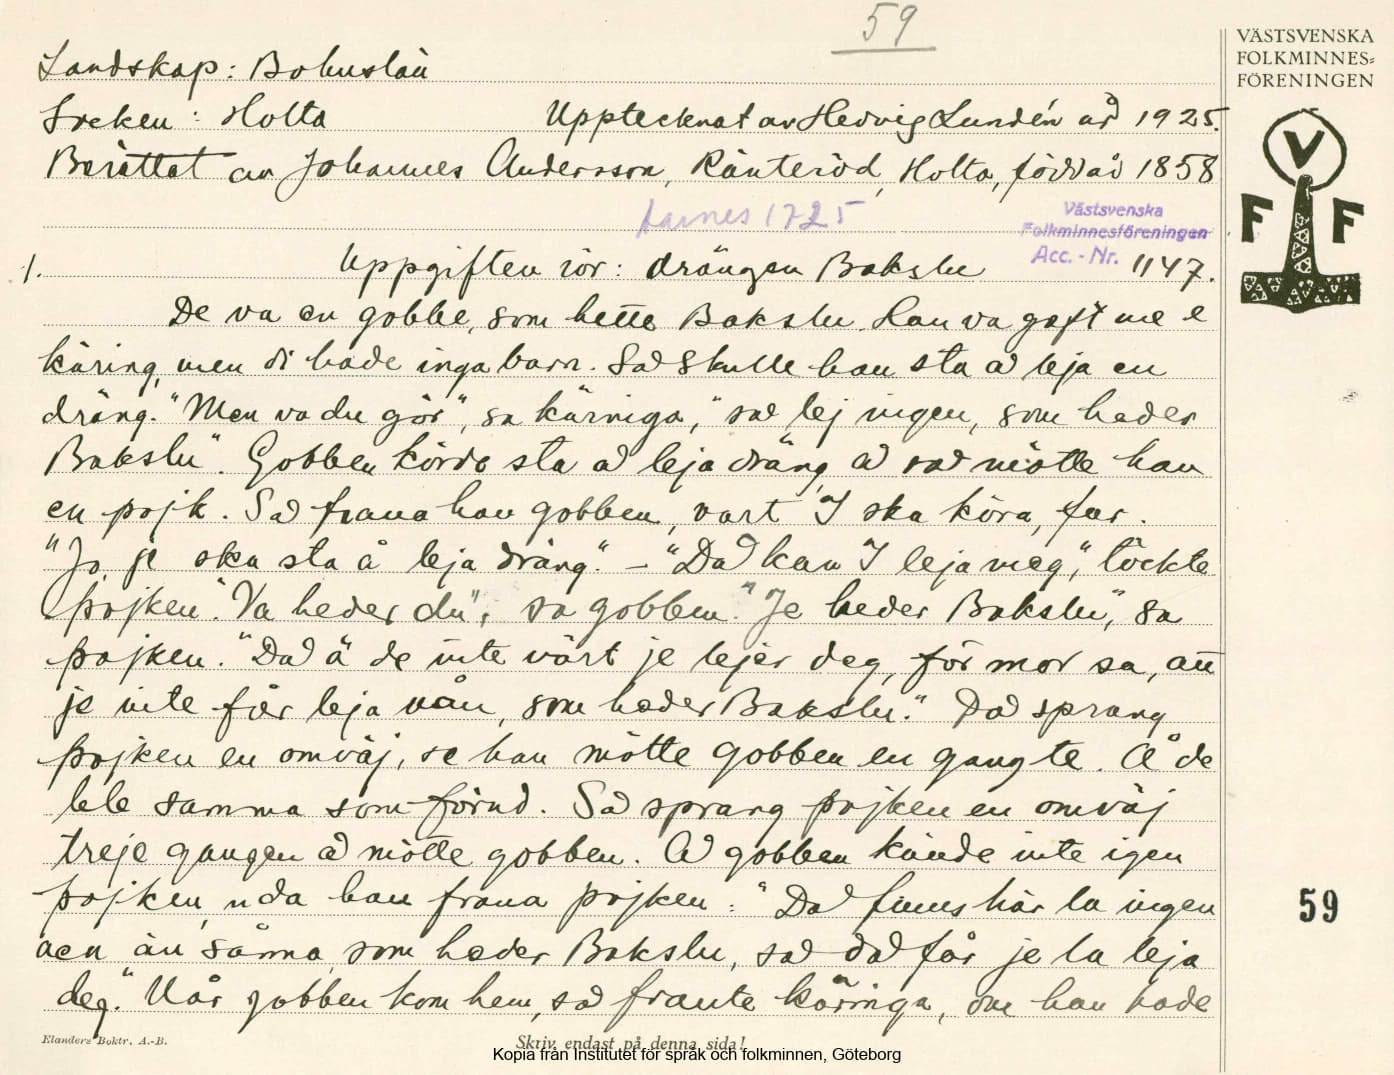 59
VÄSTSVENSKA
FOLKMINNES=
FÖRENINGEN
V
F F
Landskap: Bohuslän
Socken: Holta Upptecknat av Hedvig Lundén år 1925.
Berättat av Johannes Andersson, Ränteröd, Holta, född år 1858
Aarnes 1725
Västsvenska
Folkminnesföreningen
Acc. - Nr. 1147.
1. Uppgiften rör: drängen Bakslu
De va en gobbe, som hette Bakslu. Han va gæft me e
käring, men di hade inga barn. Så skulle han sta å leja en
dräng. "Men va du gör", sa käringa, "så lej ingen, som heder
Bakslu". Gobben körde sta å leja dräng, å så mötte han
en pojk. Så frana han gobben, vart I ska köra, far.
"Jo, je ska sta å leja dräng." – "Då kan I leja meg", töckte
pojken. "Va heder du", sa gobben. "Je heder Bakslu", sa
pojken. "Då ä de inte värt je lejer deg, för mor sa, att
je inte får leja nån, som heder Bakslu." Då sprang
pojken en omväj, se han mötte gobben en gang te. Å de
ble samma som förud. Så sprang pojken en omväj
treje gangen å mötte gobben. Å gobben kände inte igen
pojken, uda han frana pojken: "Då finns här la ingen
aen än såna, som heder Bakslu, så då får je la leja
deg." När gobben kom hem, så frante käringa, om han hade
59
Elanders Boktr. A.-B.
Skriv endast på denna sida!
Kopia från Institutet för språk och folkminnen, Göteborg